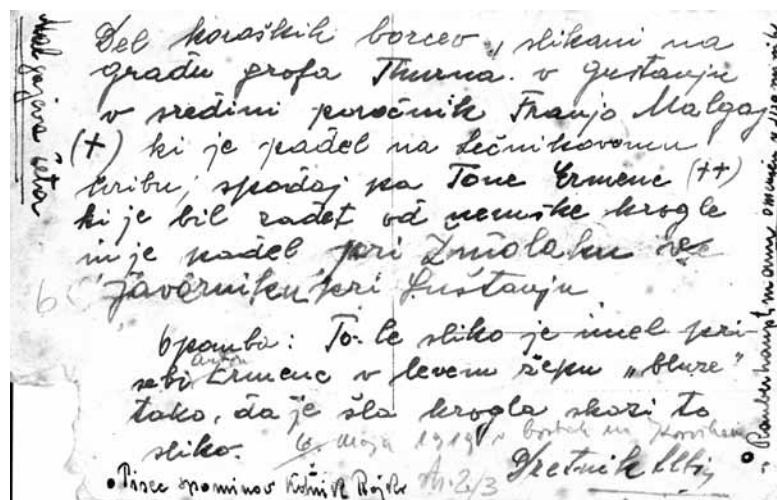 Del koroških borcev, slikani na
gradu grofa Thurna. v Guštanju
v sredini poročnik Franjo Malgaj
(+) ki je padel na Ločnikovemu
hribu, spodaj pa Tone Ermenc (++)
ki je bil zadet od nemške krogle
in je padel pri
Javorniku pri Guštanju
Opomba: To-le sliko je imel pri
sebi Anton Ermenc v levem žepu „bluze"
tako, da je šla krogla skozi to
sliko.
6. maja 1919 v
Št. 2/3
Dretnik
Pisec spominov Kotnik Rajko
Malgajeva četa